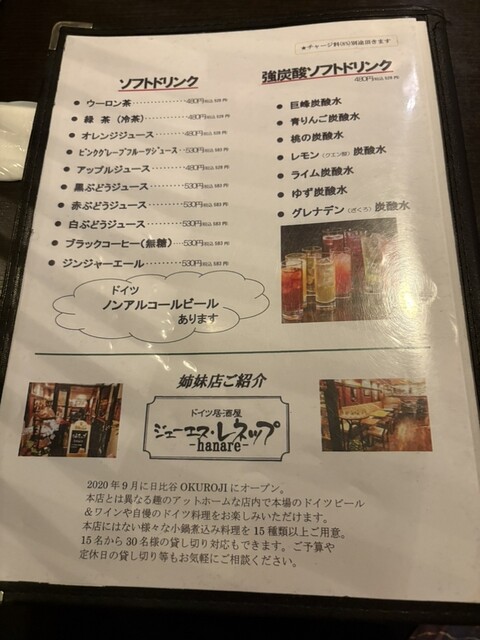 ★チャージ料(%)別途頂きます
ソフトドリンク
● ウーロン茶 480円 税込 528 円
● 緑 茶 (冷茶) 480円 税込 528 円
● オレンジジュース 480円 税込 528 円
● ピンクグレープフルーツジュース 530円 税込 583 円
● アップルジュース 480円 税込 528 円
● 黒ぶどうジュース 530円 税込 583 円
● 赤ぶどうジュース 530円 税込 583 円
● 白ぶどうジュース 530円 税込 583 円
● ブラックコーヒー(無糖) 530円 税込 583 円
● ジンジャーエール 530円 税込 583 円
ドイツ
ノンアルコールビール
あります
強炭酸ソフトドリンク
480円 税込 528 円
● 巨峰炭酸水
● 青りんご炭酸水
● 桃の炭酸水
● レモン(クエン酸)炭酸水
● ライム炭酸水
● ゆず炭酸水
● グレナデン(ざくろ)炭酸水
姉妹店ご紹介
ドイツ居酒屋
ジェーエス・レネップ
-hanare-
2020 年 9 月に日比谷 OKUROJI にオープン。
本店とは異なる趣のアットホームな店内で本場のドイツビール
&ワインや自慢のドイツ料理をお楽しみいただけます。
本店にはない様々な小鍋煮込み料理を 15 種類以上ご用意。
15 名から 30 名様の貸し切り対応もできます。ご予算や
定休日の貸し切り等もお気軽にご相談ください。